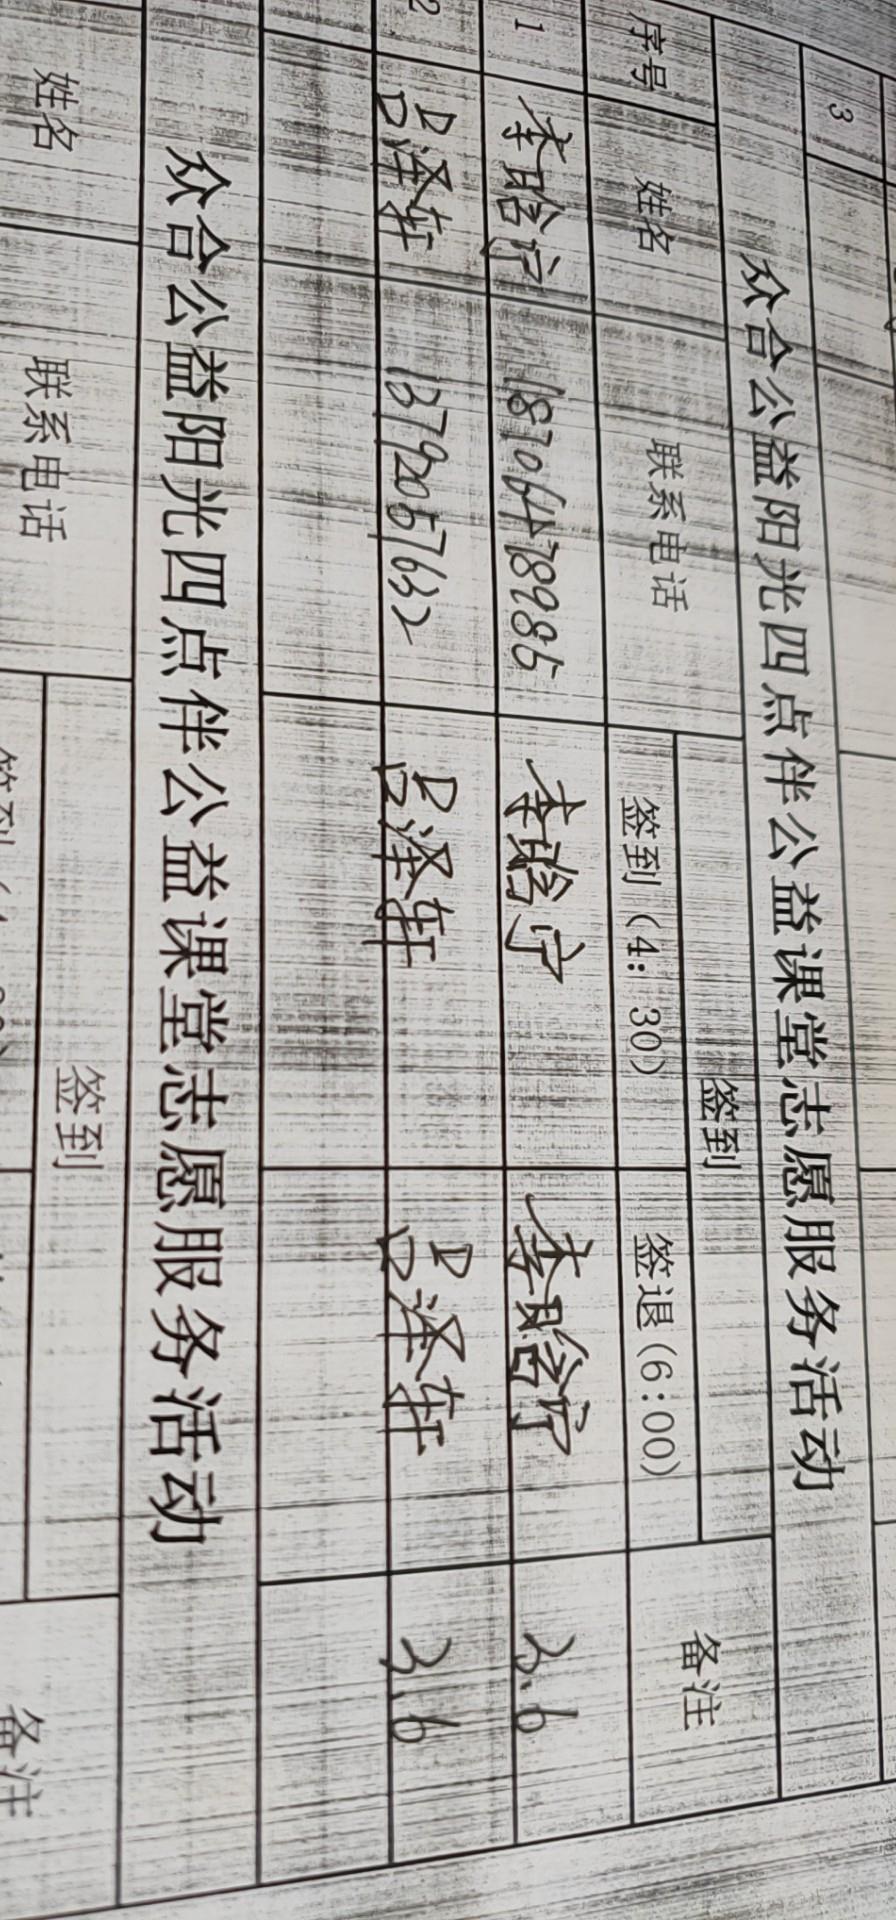 3
众合公益阳光四点伴公益课堂志愿服务活动
序号 姓名 联系电话 签到 备注
签到（4：30） 签退（6:00）
1 李晗宁 18706478985 李晗宁 李晗宁 3.6
2 吕泽轩 13792057632 吕泽轩 吕泽轩 3.6
众合公益阳光四点伴公益课堂志愿服务活动
姓名 联系电话 签到 备注